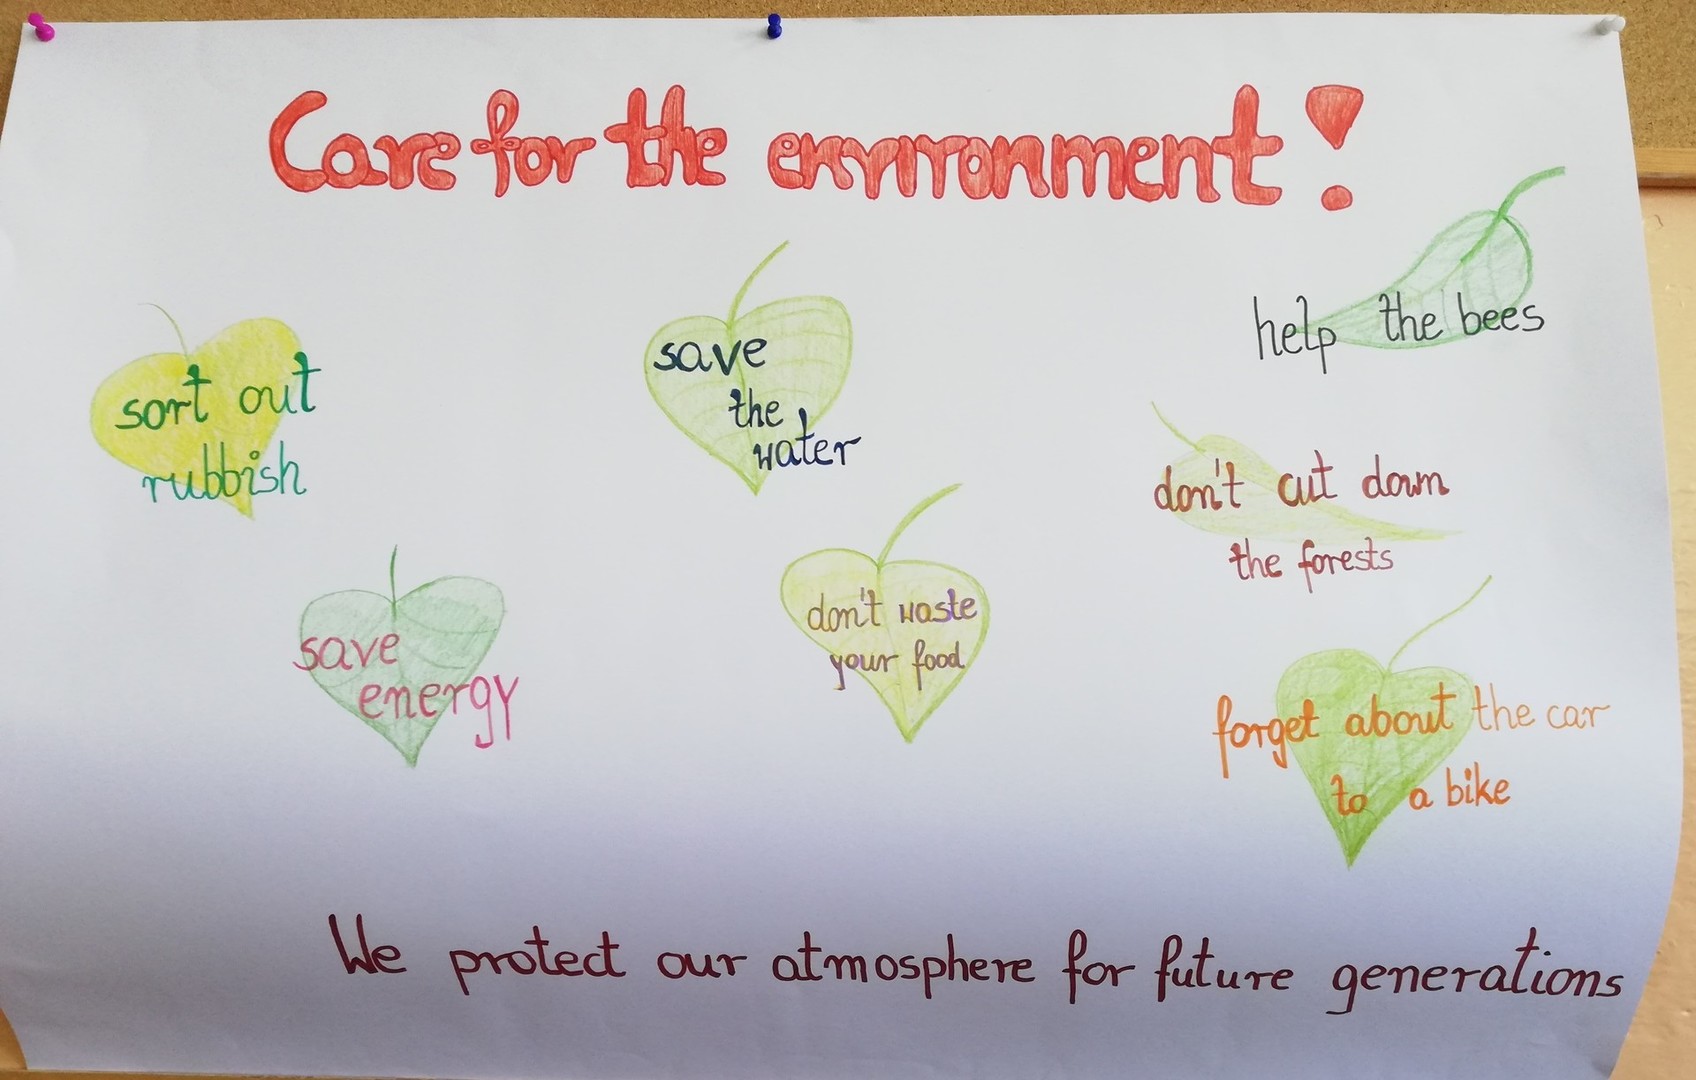 Care for the environment!
sort out
rubbish
save
the
water
help the bees
don't cut down
the forests
save
energy
don't waste
your food
forget about the car
to a bike
We protect our atmosphere for future generations